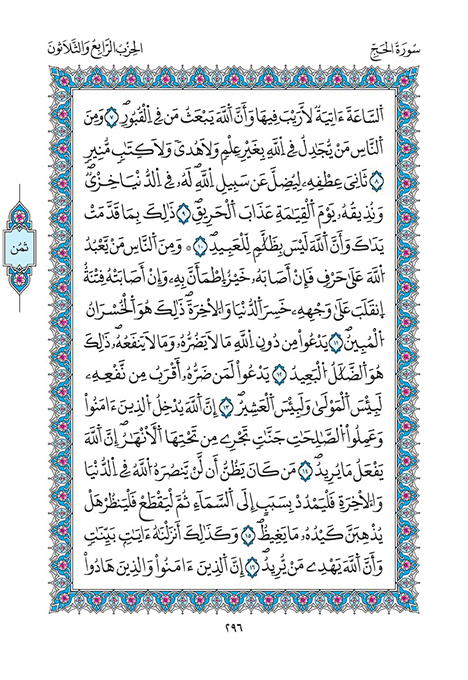 سُورَةُ الحَجِّ
الحِزْبُ الرَّابِعُ وَالثَّلَاثُونَ
اَلسَّاعَةَ ءَاتِيَةٌ لَّا رَيْبَ فِيهَا وَأَنَّ اَللَّهَ يَبْعَثُ مَن فِے اِلْقُبُورِۖ ٧ وَمِنَ
اَلنَّاسِ مَنْ يُّجَٰدِلُ فِے اِللَّهِ بِغَيْرِ عِلْمٍ وَلَا هُدىً وَلَا كِتَٰبٍ مُّنِيرٍ
٨ ثَانِيَ عِطْفِهِۦ لِيُضِلَّ عَن سَبِيلِ اِللَّهِۖ لَهُۥ فِے اِلدُّنْيَا خِزْيٌۖ
وَنُذِيقُهُۥ يَوْمَ اَلْقِيَٰمَةِ عَذَابَ اَلْحَرِيقِۖ ٩ ذَٰلِكَ بِمَا قَدَّمَتْ
يَدَاكَ وَأَنَّ اَللَّهَ لَيْسَ بِظَلَّٰمٍ لِّلْعَبِيدِۖ ١٠ ۞ وَمِنَ اَلنَّاسِ مَنْ يَّعْبُدُ
اُللَّهَ عَلَىٰ حَرْفٍ فَإِنْ أَصَابَهُۥ خَيْرٌ اِطْمَأَنَّ بِهِۦ وَإِنْ أَصَابَتْهُ فِتْنَةٌ
اِنقَلَبَ عَلَىٰ وَجْهِهِۦ خَسِرَ اَلدُّنْيَا وَالَاخِرَةَۖ ذَٰلِكَ هُوَ اَلْخُسْرَانُ
اُلْمُبِينُۖ ١١ يَدْعُواْ مِن دُونِ اِللَّهِ مَا لَا يَضُرُّهُۥ وَمَا لَا يَنفَعُهُۥۖ ذَٰلِكَ
هُوَ اَلضَّلَٰلُ اُلْبَعِيدُۖ ١٢ يَدْعُواْ لَمَن ضَرُّهُۥ أَقْرَبُ مِن نَّفْعِهِۦ
لَبِئْسَ اَلْمَوْلَىٰ وَلَبِئْسَ اَلْعَشِيرُۖ ١٣ إِنَّ اَللَّهَ يُدْخِلُ اُلذِينَ ءَامَنُواْ
وَعَمِلُواْ اُلصَّٰلِحَٰتِ جَنَّٰتٍ تَجْرِے مِن تَحْتِهَا اَلَانْهَٰرُۖ إِنَّ اَللَّهَ
يَفْعَلُ مَا يُرِيدُۖ ١٤ مَن كَانَ يَظُنُّ أَن لَّنْ يَّنصُرَهُ اُللَّهُ فِے اِلدُّنْيَا
وَالَاخِرَةِ فَلْيَمْدُدْ بِسَبَبٍ اِلَى اَلسَّمَآءِ ثُمَّ لِيَقْطَعْ فَلْيَنظُرْ هَلْ
يُذْهِبَنَّ كَيْدُهُۥ مَا يَغِيظُۖ ١٥ وَكَذَٰلِكَ أَنزَلْنَٰهُ ءَايَٰتٍۢ بَيِّنَٰتٍ
وَأَنَّ اَللَّهَ يَهْدِے مَنْ يُّرِيدُۖ ١٦ إِنَّ اَلذِينَ ءَامَنُواْ وَالذِينَ هَادُواْ
ثُمُن
٢٩٦